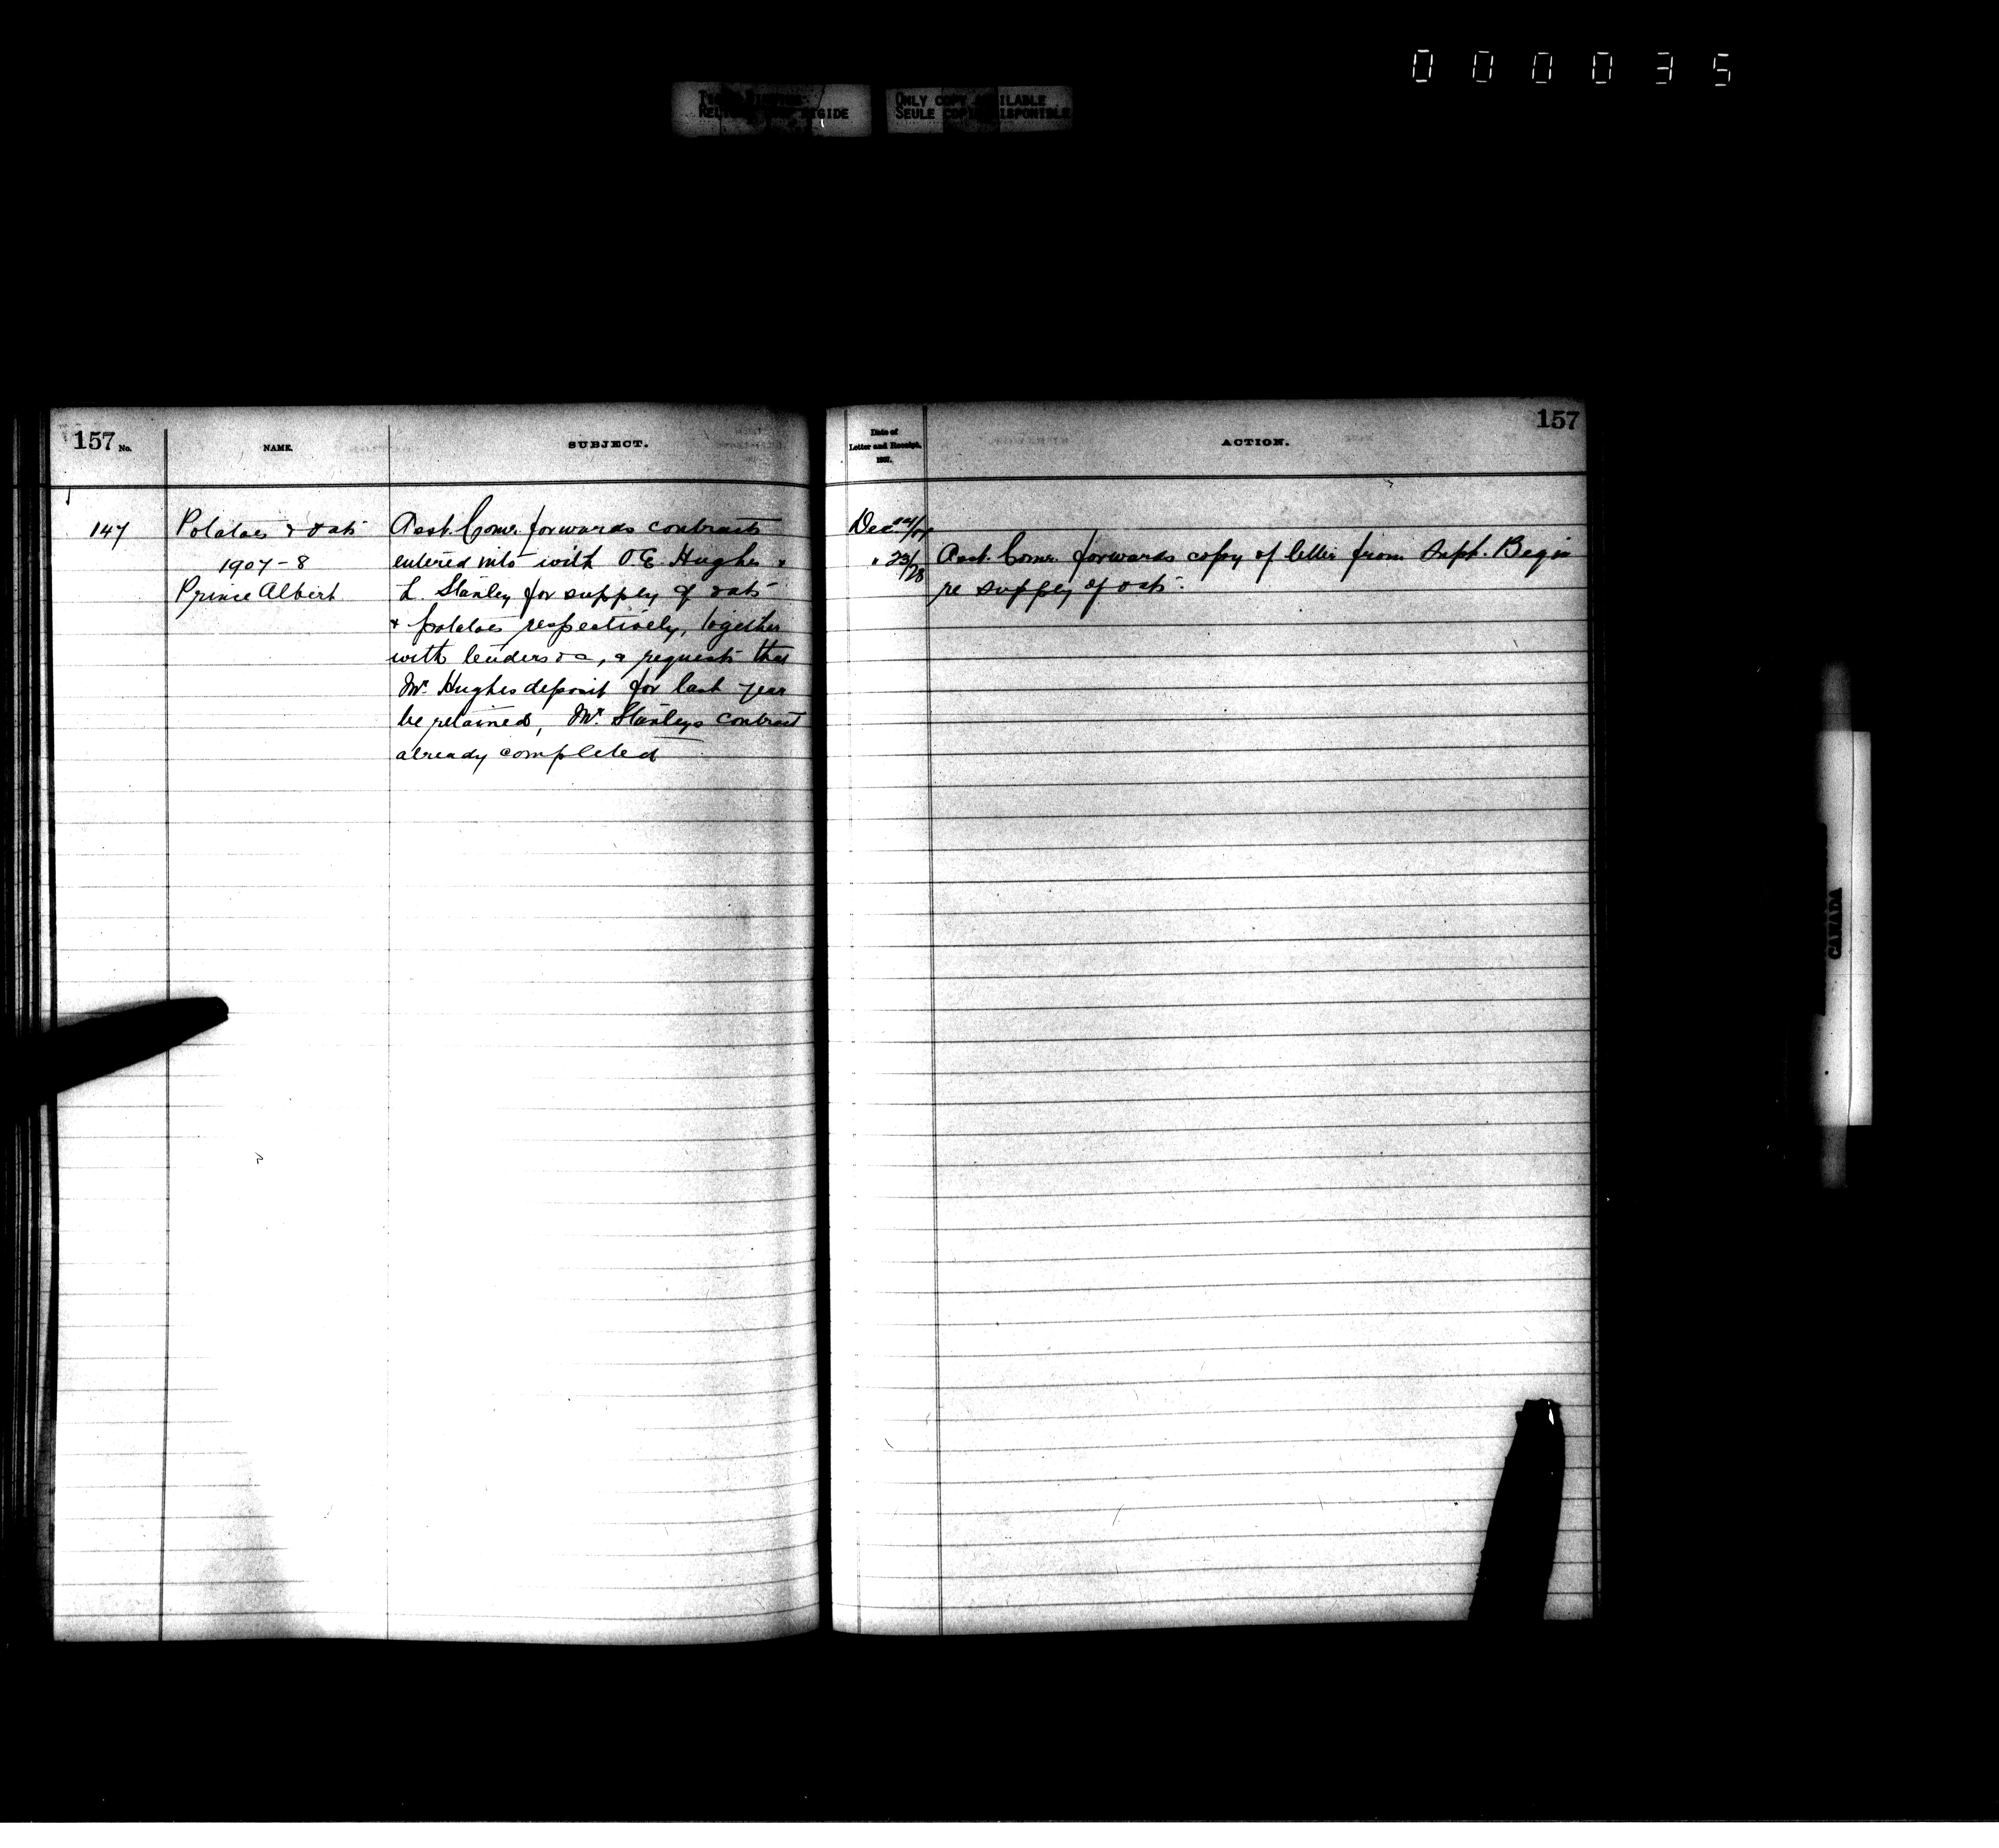 000035
ONLY COPY AVAILABLE
SEULE COPIE DISPONIBLE
157 No.
NAME.
SUBJECT.
147
Potatoes & Oats
1907-8
Prince Albert
Asst. Comr. forwards contracts
entered into with O.E. Hughes &
L. Stanley for supply of oats
& potatoes respectively, together
with tenders &c, & requests that
Mr. Hughes deposit for last year
be retained, Mr. Stanleys contract
already completed
Date of
Letter and Receipt,
1907.
ACTION.
157
Dec
" 23/28
Asst. Comr. forwards copy of letter from Supt. Begin
re supply of oats.
CANADA